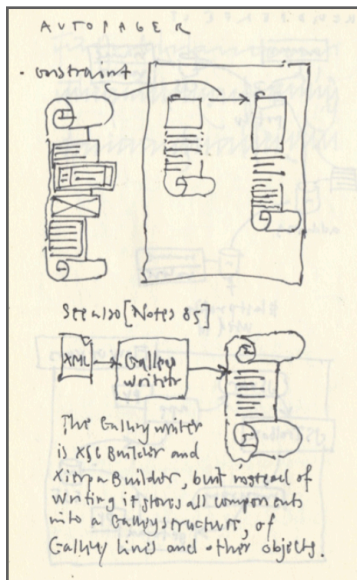 AUTOPAGER
• constraint
See also [Notes 85]
XML
Galley
writer
The Galley writer
is XSL Builder and
XierpaBuilder, but instead of
writing it stores all components
into a Galley structure, of
Galley lines and other objects.